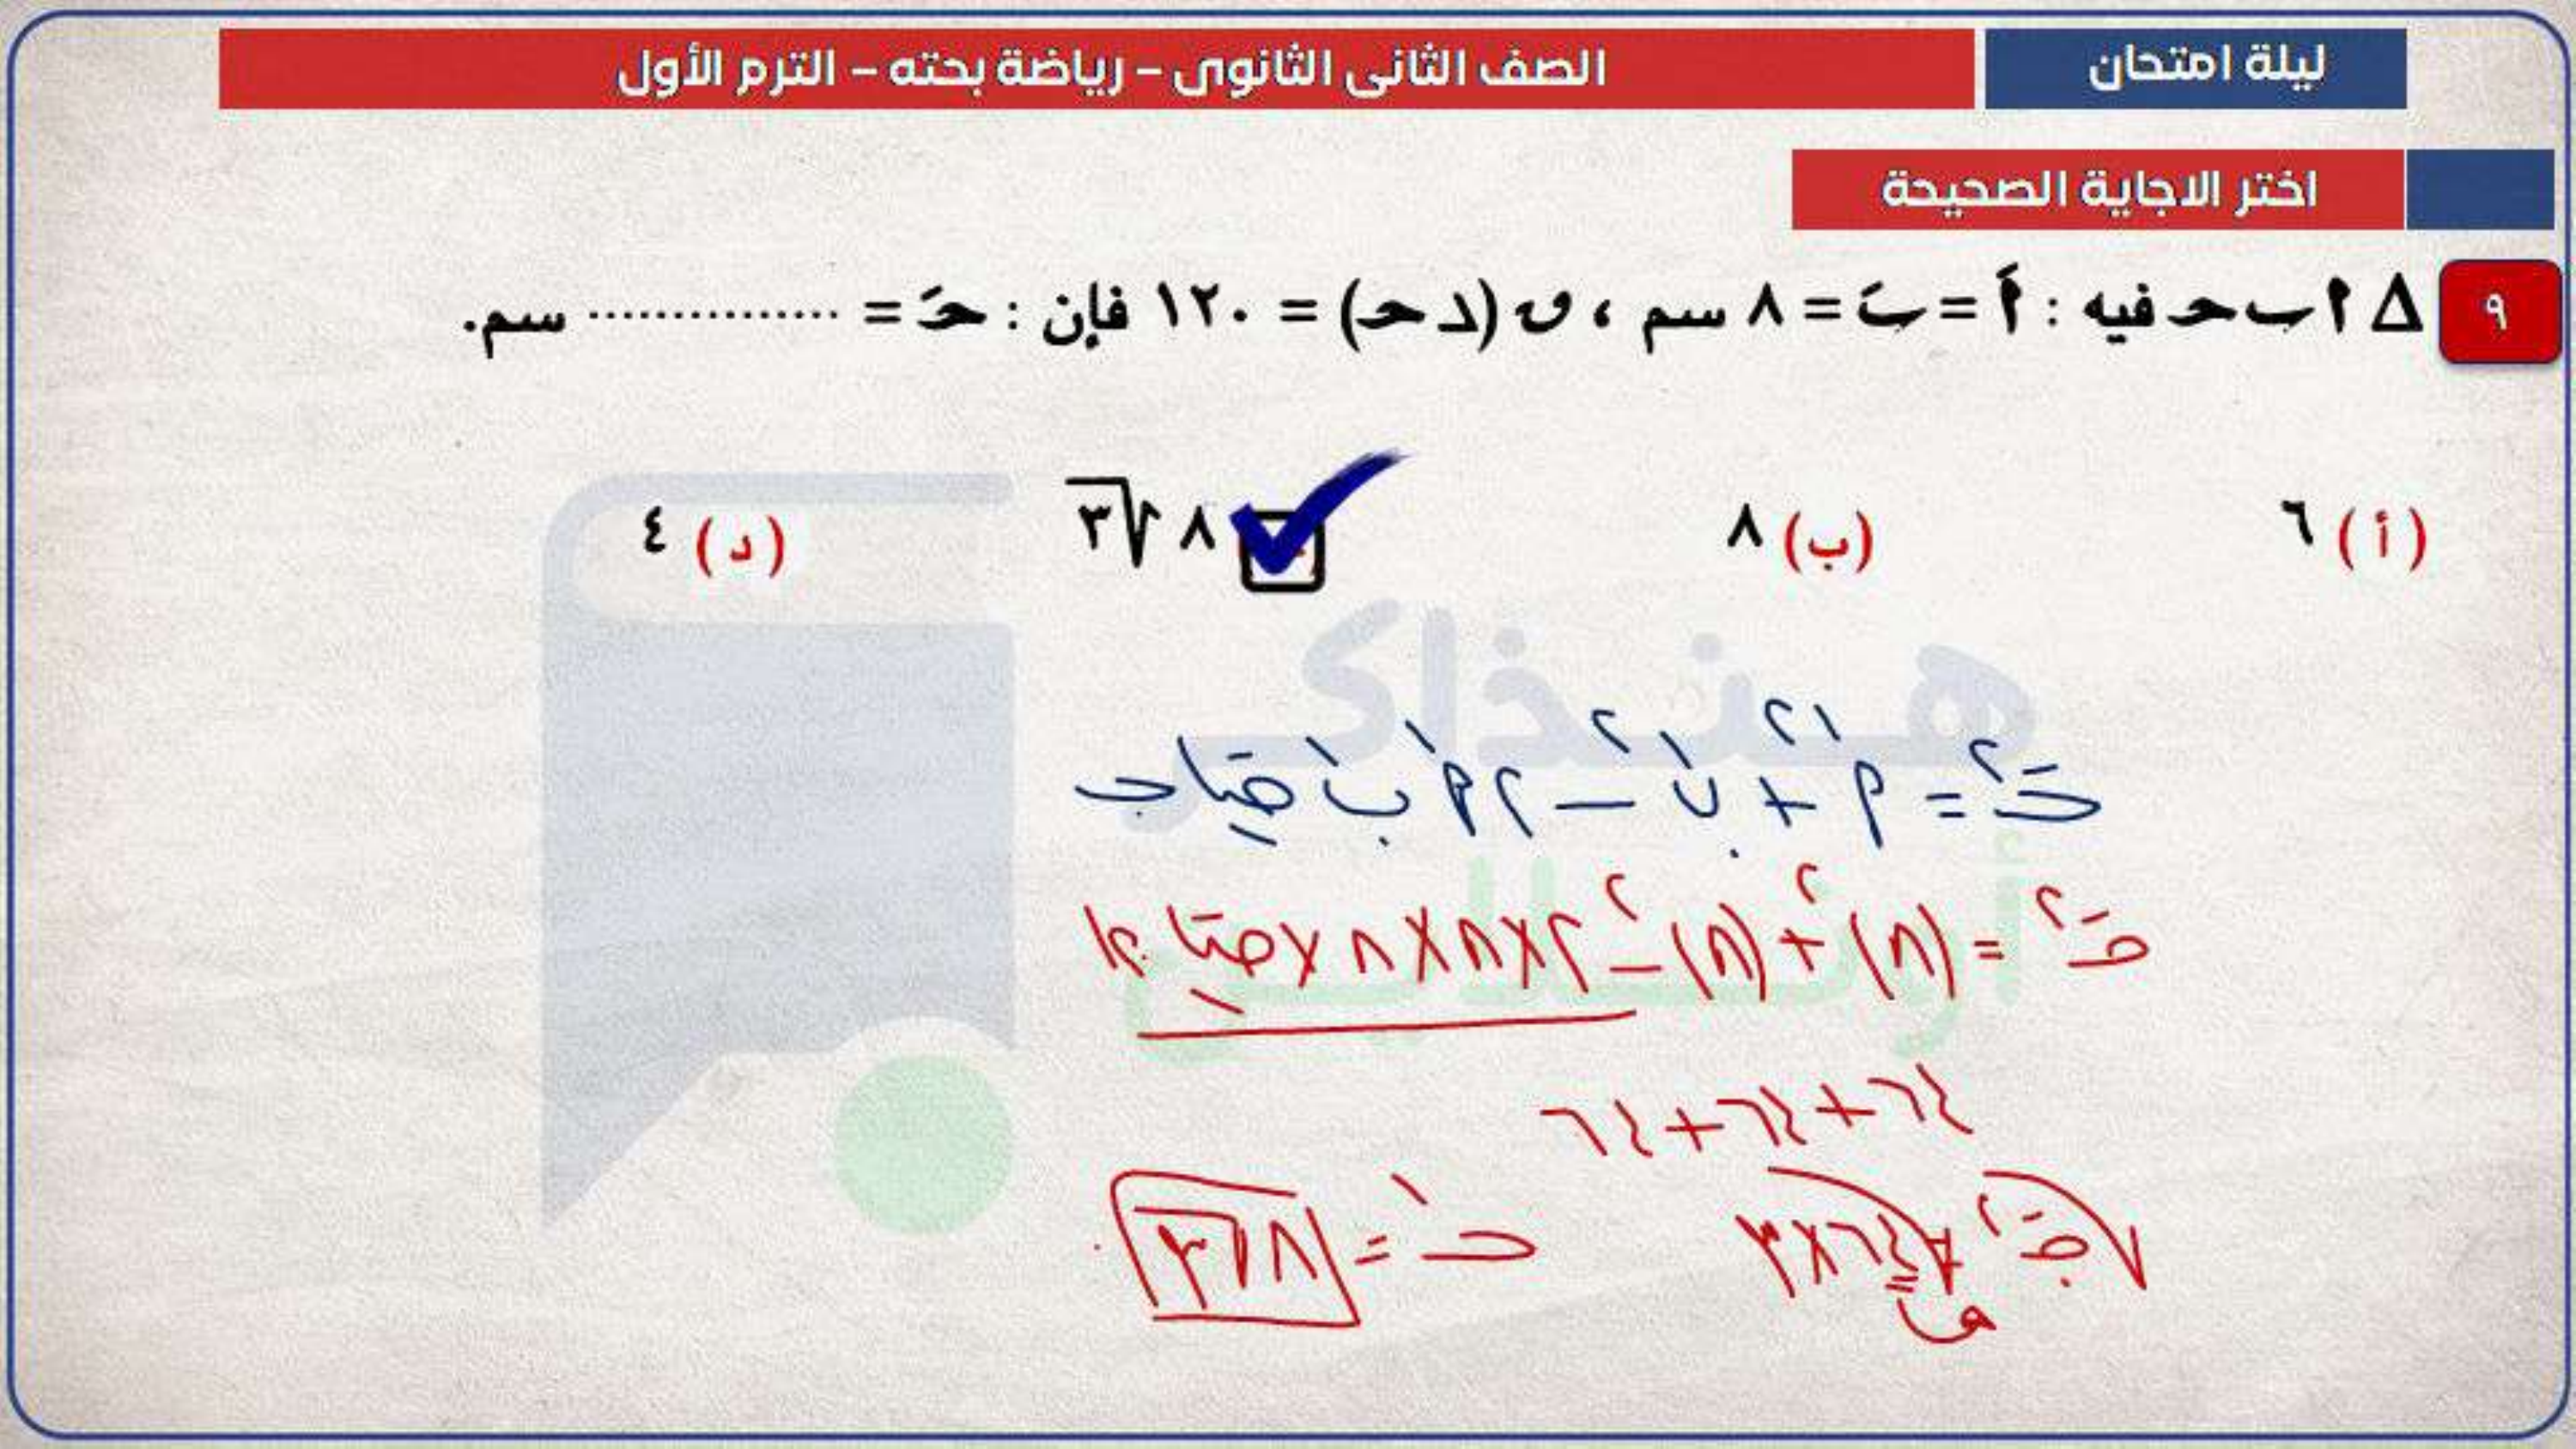 ليلة امتحان
الصف الثانى الثانوى – رياضة بحته – الترم الأول
اختر الاجاية الصحيحة
٩ Δ ا ب حـ فيه : أَ = بَ = ٨ سم ، ق (د حـ) = ١٢٠ فإن : حـَ = ............... سم.
(أ) ٦
(ب) ٨
٨ √٣
(د) ٤
هنذاكر
أونلاين
حـَ٢ = أَ٢ + بَ٢ – ٢ أَ بَ حتا حـ
حـَ٢ = (٨)٢ + (٨)٢ – ٢×٨×٨× حتا ١٢٠
٦٤ + ٦٤ + ٦٤
حـَ٢ = ٦٤×٣
حـَ = ٨√٣